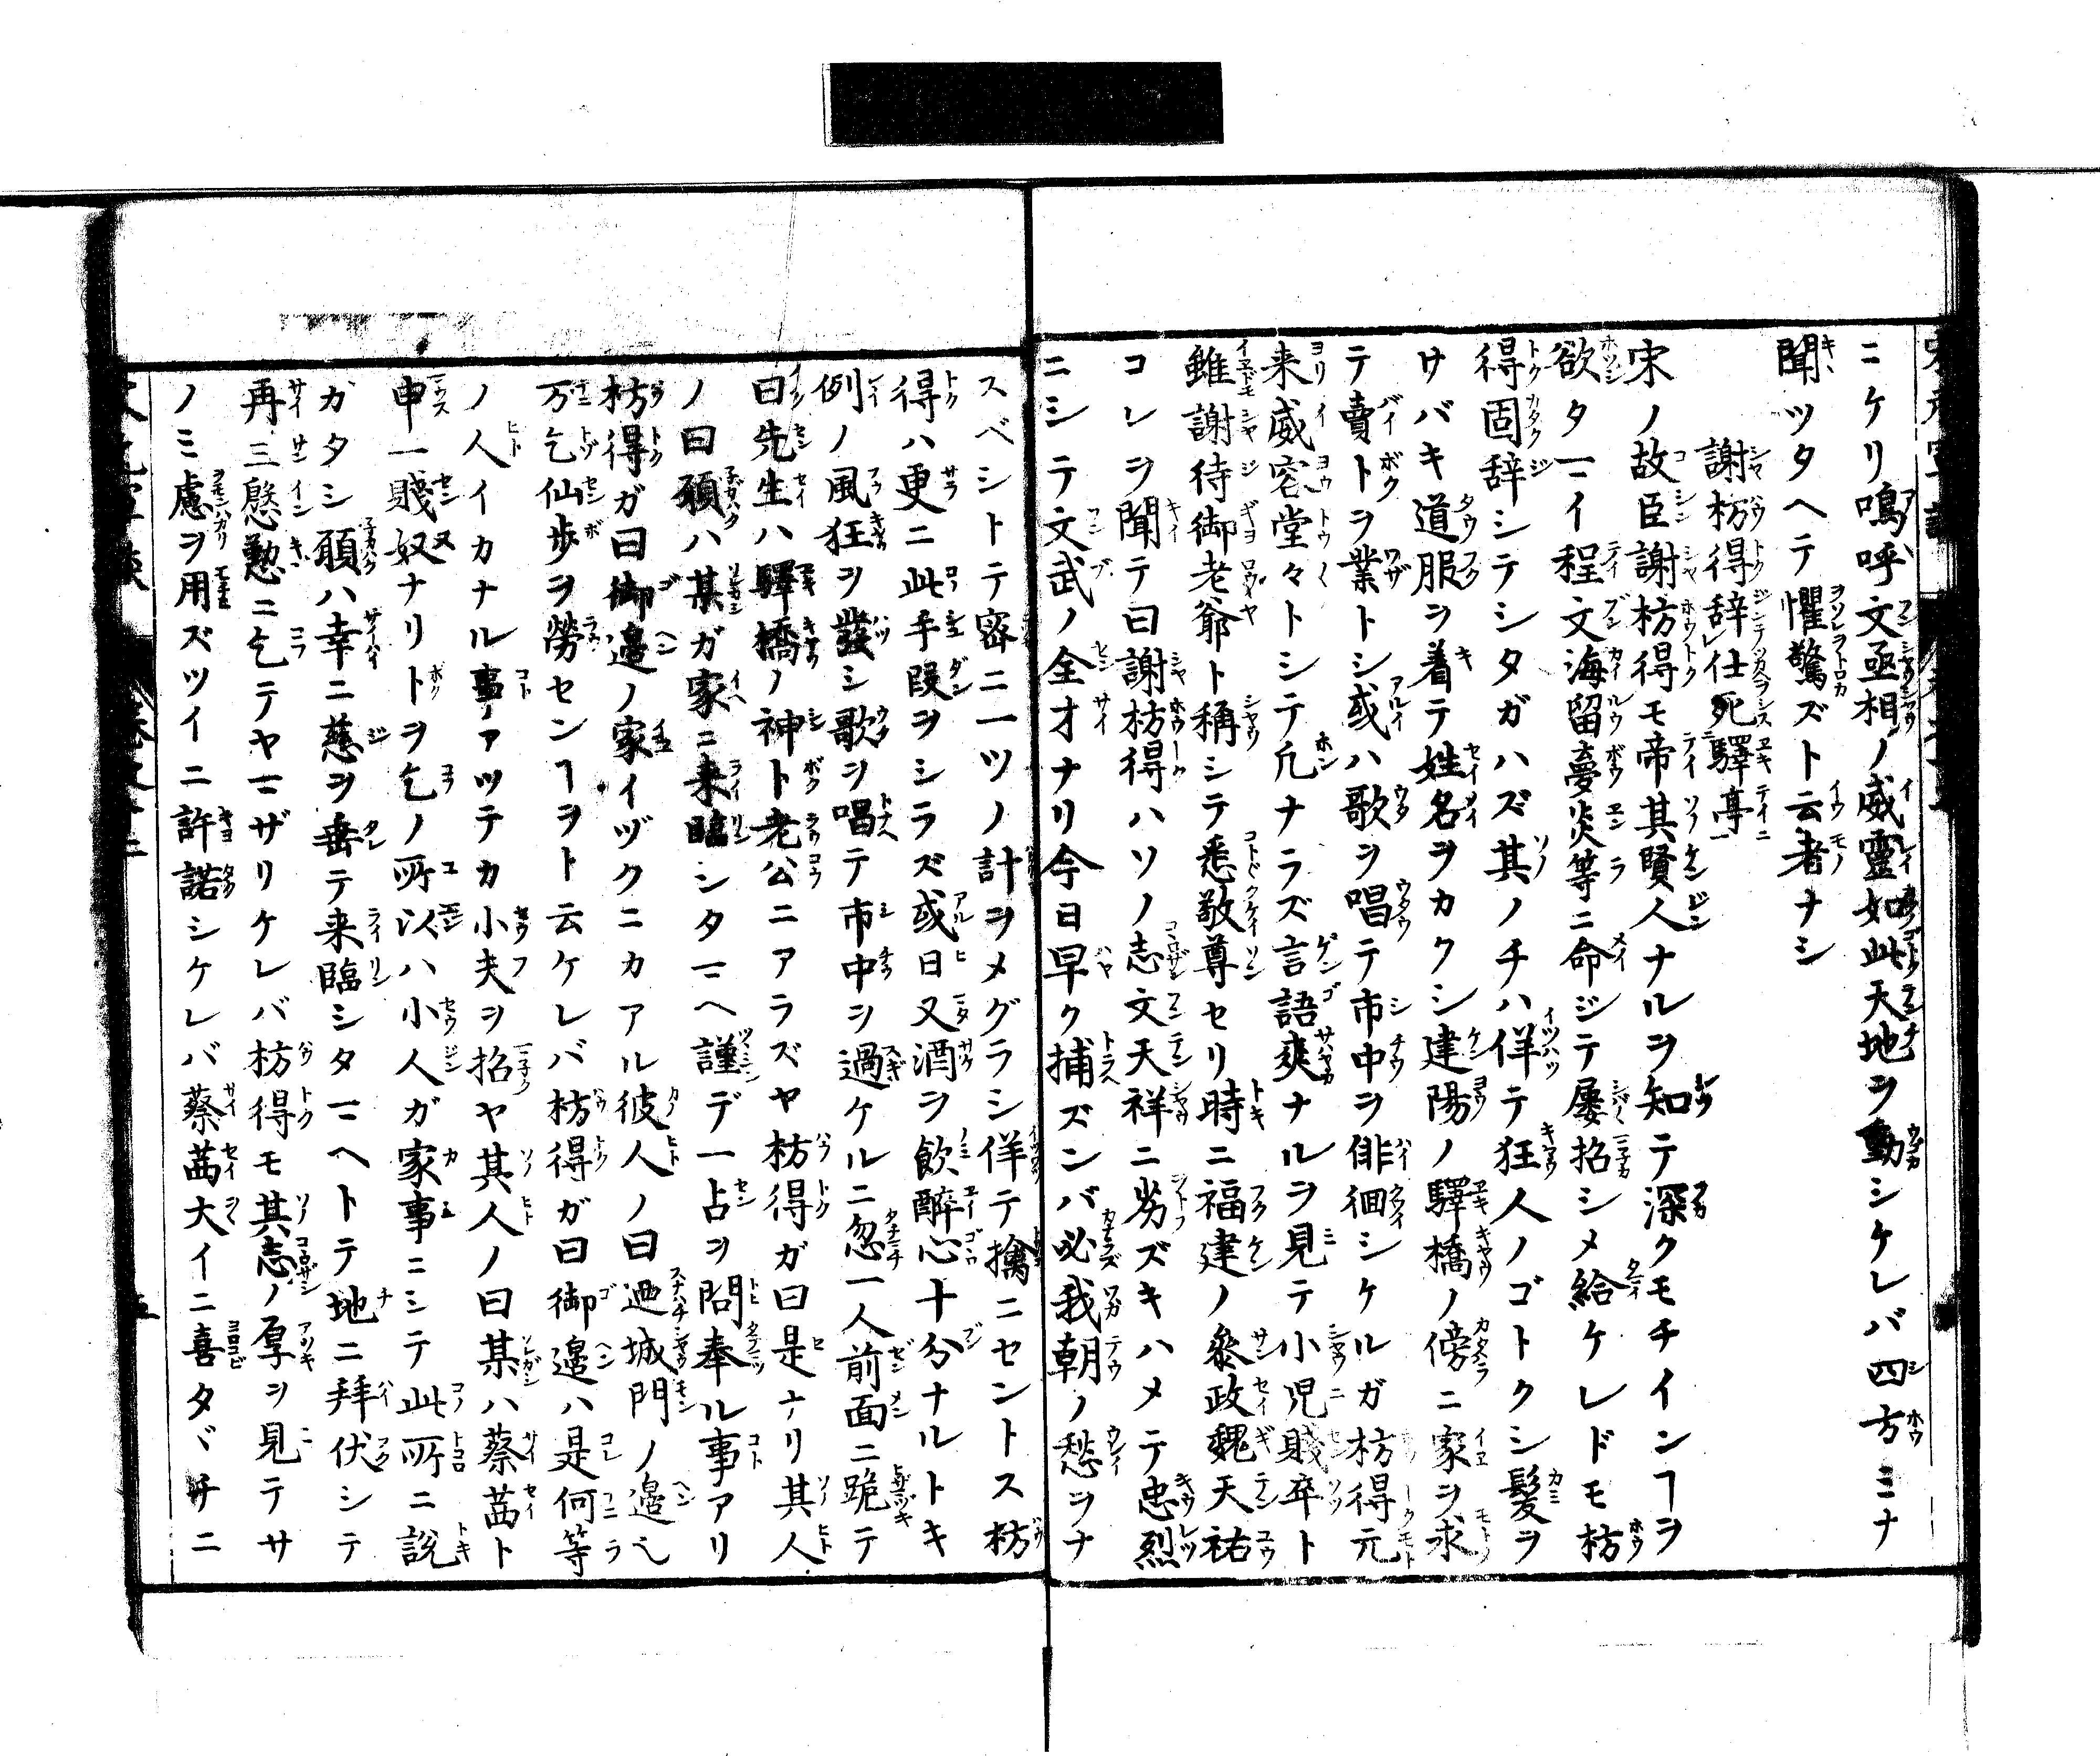 ニケリ嗚呼文丞相ノ威靈如此天地ヲ動シケレバ四方ミナ
聞ツタヘテ懼驚ズト云者ナシ
謝枋得辞仕死驛亭
宋ノ故臣謝枋得モ帝其賢人ナルヲ知テ深クモチインヿヲ
欲タマイ程文海留夢炎等ニ命ジテ屡招シメ給ケレドモ枋
得固辞シテシタガハズ其ノチハ佯テ狂人ノゴトクシ髪ヲ
サバキ道服ヲ着テ姓名ヲカクシ建陽ノ驛橋ノ傍ニ家ヲ求
テ賣卜ヲ業トシ或ハ歌ヲ唱テ市中ヲ徘徊シケルガ枋得元
来威容堂々トシテ凢ナラズ言語爽ナルヲ見テ小児賤卒ト
雖謝待御老爺ト稱シテ悉敬尊セリ時ニ福建ノ参政魏天祐
コレヲ聞テ曰謝枋得ハソノ志文天祥ニ劣ズキハメテ忠烈
ニシテ文武ノ全才ナリ今日早ク捕ズンバ必我朝ノ愁ヲナ
スベシトテ密ニ一ツノ計ヲメグラシ佯テ擒ニセントス枋
得ハ更ニ此手段ヲシラズ或日又酒ヲ飲醉心十分ナルトキ
例ノ風狂ヲ發シ歌ヲ唱テ市中ヲ過ケルニ忽一人前面ニ跪テ
曰先生ハ驛橋ノ神卜老公ニアラズヤ枋得ガ曰是ナリ其人
ノ曰願ハ某ガ家ニ来臨シタマヘ謹デ一占ヲ問奉ル事アリ
枋得ガ曰御邉ノ家イヅクニカアル彼人ノ曰廼城門ノ邉也
万乞仙歩ヲ勞センヿヲト云ケレバ枋得ガ曰御邉ハ是何等
ノ人イカナル事アツテカ小夫ヲ招ヤ其人ノ曰某ハ蔡茜ト
申一賤奴ナリトヲ乞ノ所以ハ小人ガ家事ニシテ此所ニ説
ガタシ願ハ幸ニ慈ヲ垂テ来臨シタマヘトテ地ニ拜伏シテ
再三慇懃ニ乞テヤマザリケレバ枋得モ其志ノ厚ヲ見テサ
ノミ慮ヲ用ズツイニ許諾シケレバ蔡茜大イニ喜タヾチニ